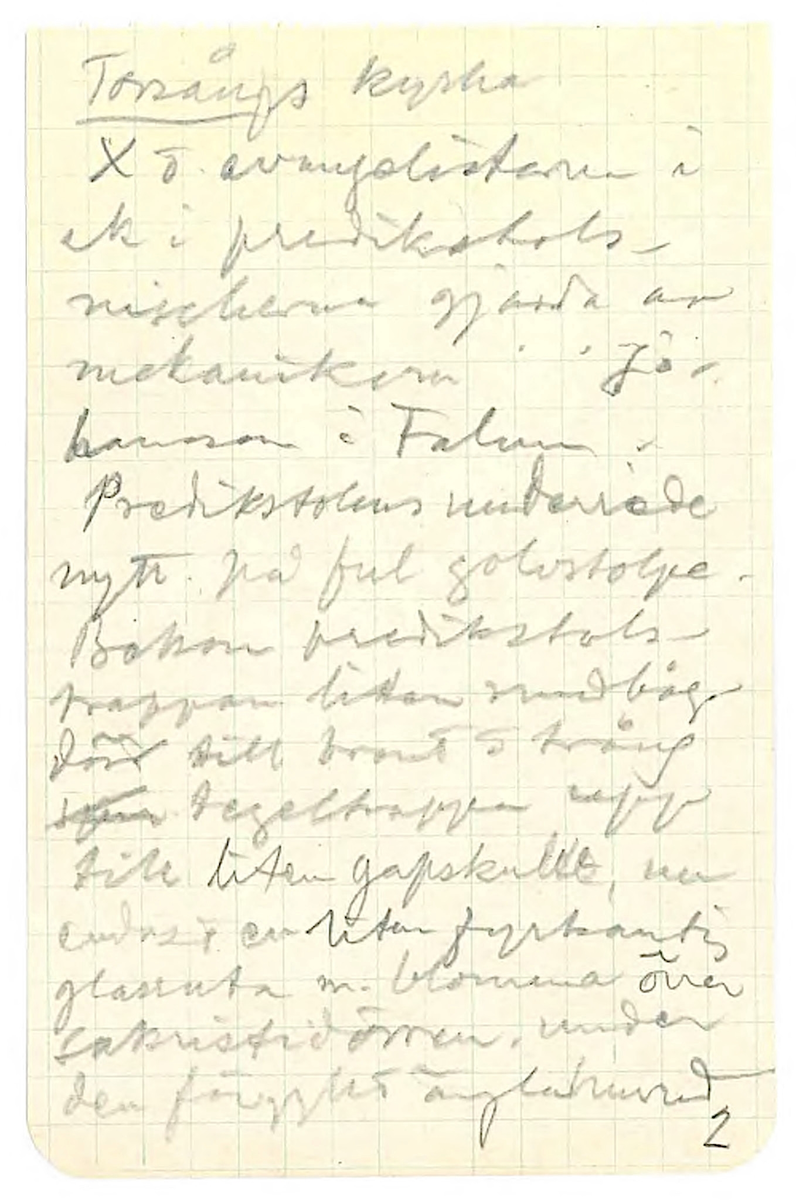 Torsångs kyrka
X o. evangelisterna i
ek i predikstols-
nischerna gjorda av
mekanikern Jo-
hansson i Falun.
Predikstolens underrede
nytt. på ful golvstolpe.
Bakom predikstols-
trappan liten rundbåg
dörr till brant o trång
tegeltrappa upp
till liten gapskulle, nu
endast en liten fyrkantig
glasruta m. blomma över
sakristidörren. under
den förgyllt änglahuvud
2